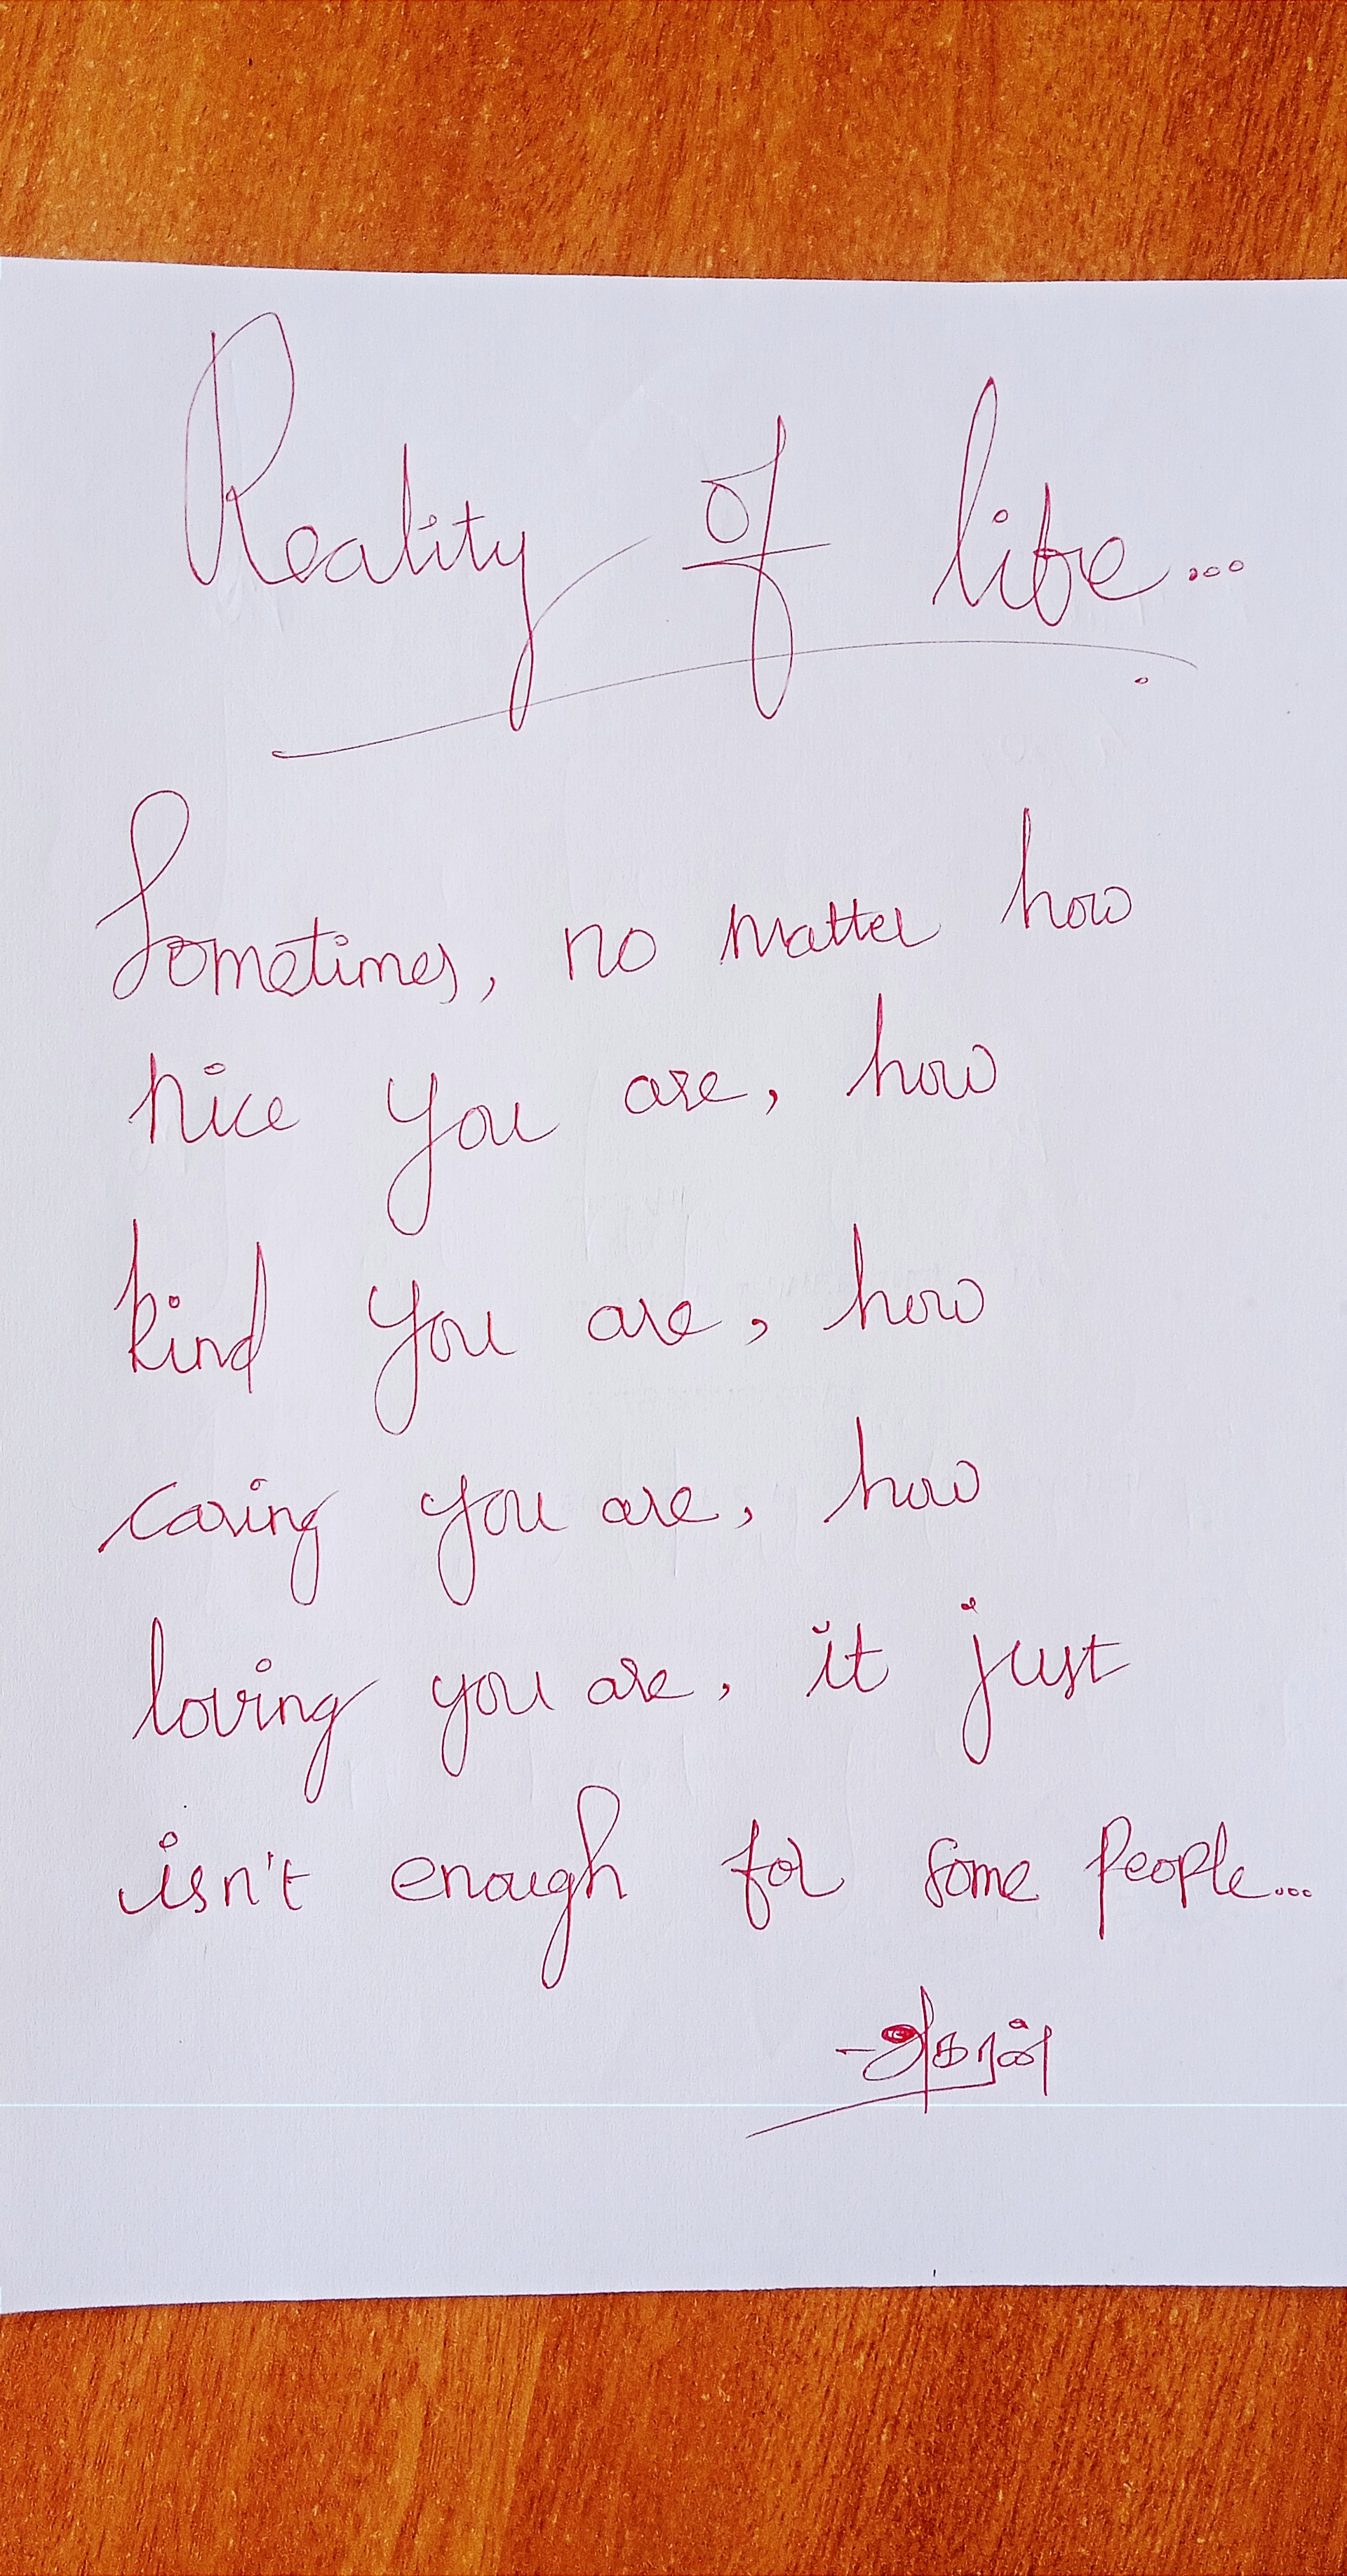 Reality of life...
Sometimes, no matter how
nice you are, how
kind you are, how
caring you are, how
loving you are, it just
isn't enough for some people...
-அகரன்